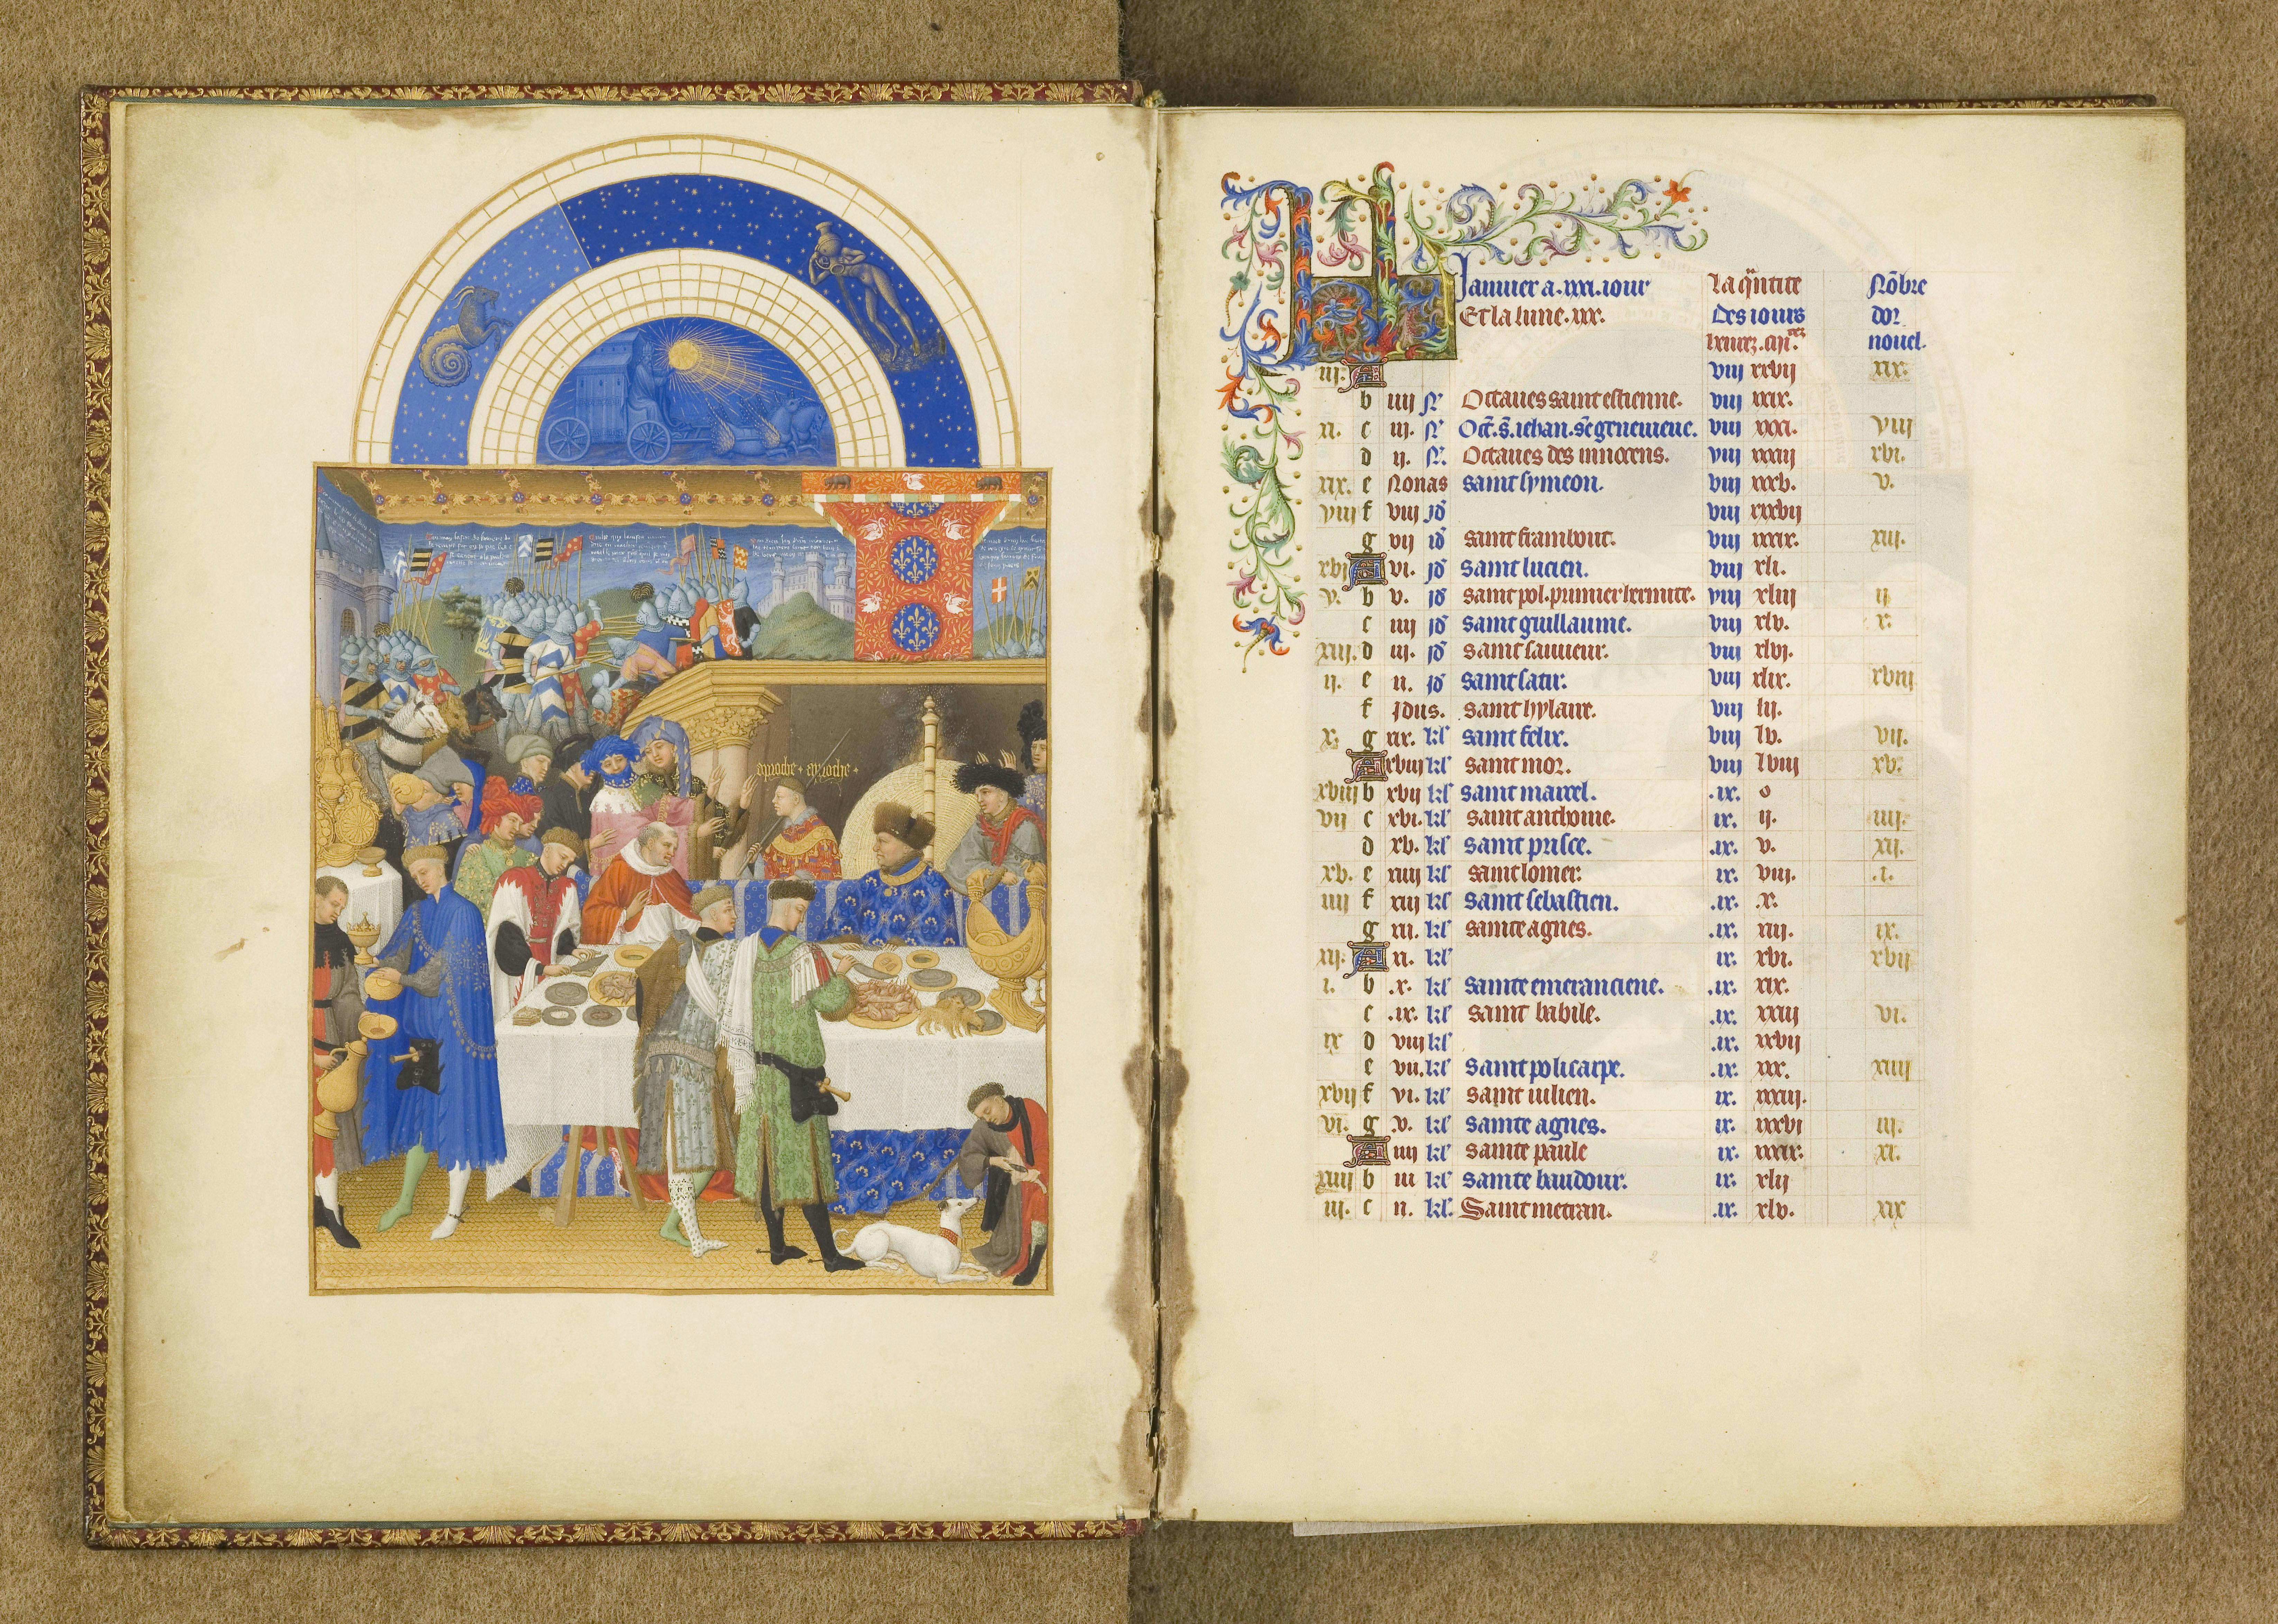 aproche + aproche +
Januier a .xxxi. iour
Et la lune .xxx.
La q̃ntite
des iours
Nõbre
dor
nouel.
iii. A viii xxvii xix.
b iiii N̄ Octaues saint estienne. viii xxix.
xi. c iii. N̄ Oct̃. s̃. iehan. sc̃e geneuieue. viii xxxi. viii
d ii. N̄ Octaues des innocens. viii xxxiii xvi.
xix. e Nonas saint symeon. viii xxxv. v.
viii f viii id̃ viii xxxvii
g vii id̃ saint frambout. viii xxxix. xiii.
xvi A vi. id̃ saint lucien. viii xli.
v. b v. id̃ saint pol. premier hermite. viii xliii ii
c iiii id̃ saint guillaume. viii xlv. x.
xiii. d iii. id̃ saint sauueur. viii xlvi.
ii. e ii. id̃ saint satir. viii xlix. xviii
f idus. saint hylaire. viii lii.
x. g xix. kl̃ saint felix. viii lv. vii.
A xviii kl̃ saint mor. viii lviii xv.
xviii b xvii kl̃ saint marcel. .ix. o
vii c xvi. kl̃ saint anthoine. ix. ii. iiii.
d xv. kl̃ saint prisce. .ix. v. xii.
xv. e xiiii kl̃ saint lomer. ix. viii. .i.
iiii f xiii kl̃ saint sebastien. .ix. .x.
g xii. kl̃ sainte agnes. .ix. xiii. ix.
xii. A xi. kl̃ ix. xvi. xvii
i. b .x. kl̃ sainte emeranciene. .ix. xix.
c .ix. kl̃ saint babile. .ix. xxiii vi.
ix d viii kl̃ .ix. xxvii
e vii. kl̃ saint policarpe. .ix. xxx. xiiii
xvii f vi. kl̃ saint iulien. ix. xxxiii.
vi. g .v. kl̃ sainte agnes. ix. xxxvi iii.
A iiii kl̃ sainte paule ix. xxxix. xi.
xiiii b iii kl̃ sainte baudour. ix. xlii
iii. c ii. kl̃. Saint metran. .ix. xlv. xix
2